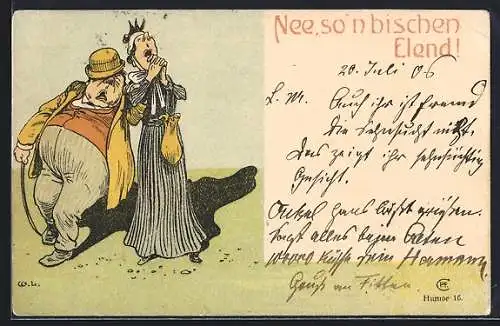 Nee, so'n bischen
Elend!
20. Juli 06
L. M. Auch ihr ist fremd
die Sehnsucht nicht.
Das zeigt ihr sehnsüchtig
Gesicht.
Onkel Hans läßt grüßen.
sagt alles beim Alten
10000 Küsse Dein Hermann
Gruss an
W.L.
Humor 16.